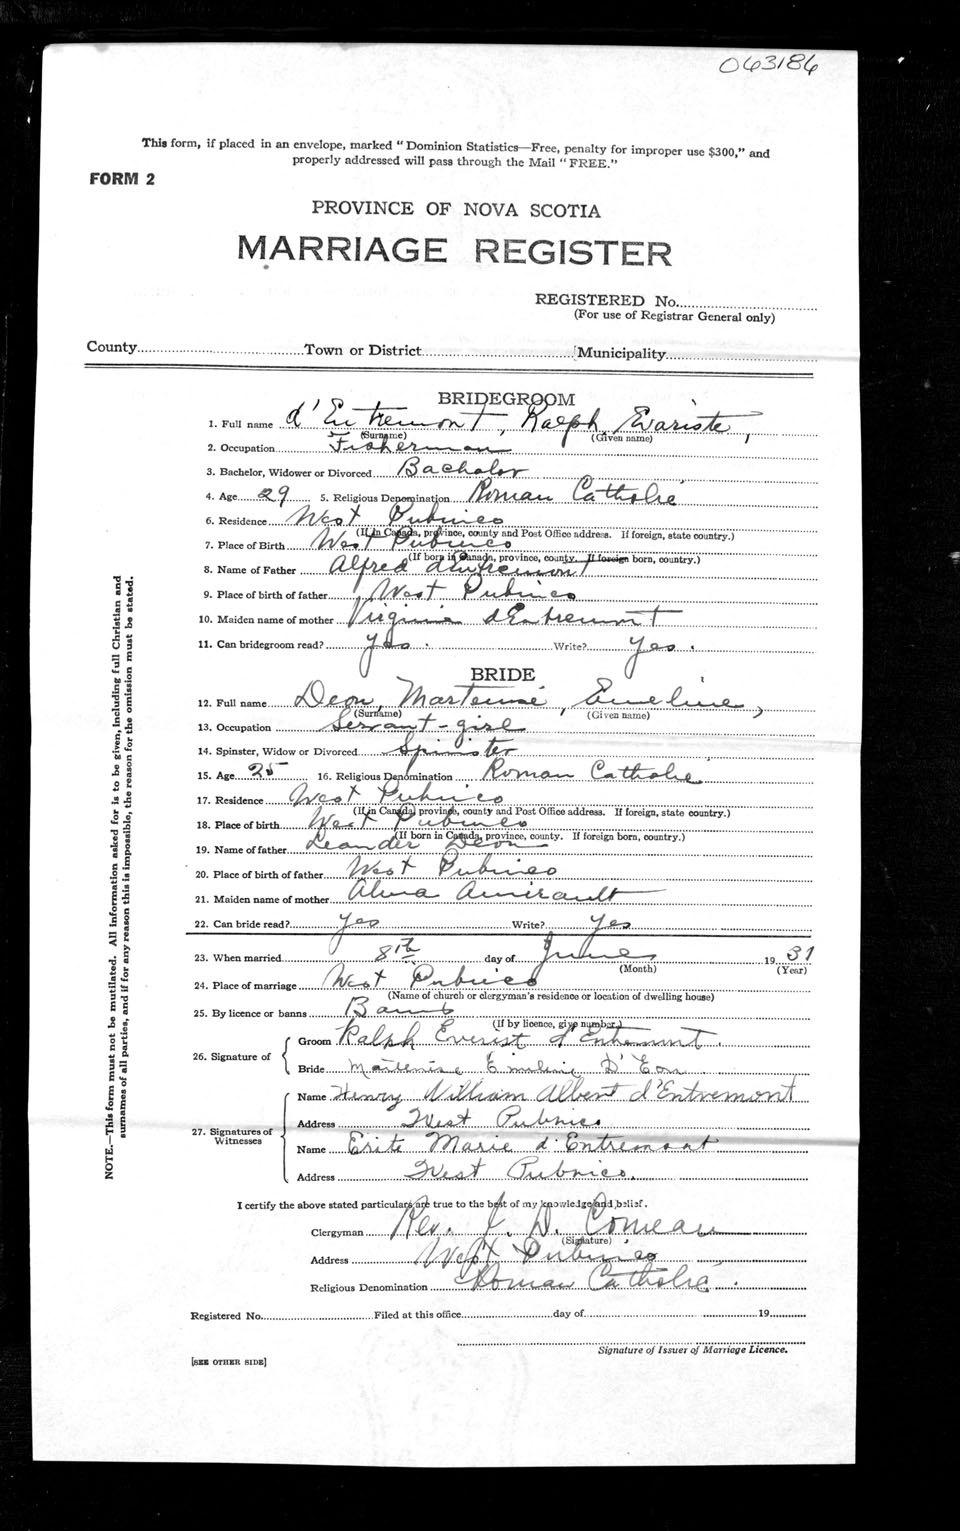 063186
This form, if placed in an envelope, marked "Dominion Statistics—Free, penalty for improper use $300," and
properly addressed will pass through the Mail "FREE."
FORM 2
PROVINCE OF NOVA SCOTIA
MARRIAGE REGISTER
REGISTERED No.
(For use of Registrar General only)
County Town or District Municipality
BRIDEGROOM
1. Full name d'Entremont, Ralph Evariste,
(Surname) (Given name)
2. Occupation Fisherman
3. Bachelor, Widower or Divorced Bachelor
4. Age 29 5. Religious Denomination Roman Catholic
6. Residence West Pubnico
(If in Canada, province, county and Post Office address. If foreign, state country.)
7. Place of Birth West Pubnico
(If born in Canada, province, county. If foreign born, country.)
8. Name of Father Alfred d'Entremont
9. Place of birth of father West Pubnico
10. Maiden name of mother Virginie d'Entremont
11. Can bridegroom read? Yes. Write? Yes.
BRIDE
12. Full name Deon, Martensé, Emeline,
(Surname) (Given name)
13. Occupation Servant-girl
14. Spinster, Widow or Divorced Spinster
15. Age 25 16. Religious Denomination Roman Catholic
17. Residence West Pubnico
(If in Canada, province, county and Post Office address. If foreign, state country.)
18. Place of birth West Pubnico
(If born in Canada, province, county. If foreign born, country.)
19. Name of father Leander Deon
20. Place of birth of father West Pubnico
21. Maiden name of mother Alma Amirault
22. Can bride read? Yes Write? Yes
23. When married 8th day of June 1931
(Month) (Year)
24. Place of marriage West Pubnico
(Name of church or clergyman's residence or location of dwelling house)
25. By licence or banns Banns
(If by licence, give number.)
26. Signature of
Groom Ralph Everist d'Entremont.
Bride Martenise Emiline D'Eon
27. Signatures of Witnesses
Name Henry William Albert d'Entremont
Address West Pubnico
Name Erite Marie d'Entremont
Address West Pubnico.
I certify the above stated particulars are true to the best of my knowledge and belief.
Clergyman Rev. J. D. Comeau
(Signature)
Address West Pubnico
Religious Denomination Roman Catholic.
Registered No. Filed at this office day of 19
Signature of Issuer of Marriage Licence.
[SEE OTHER SIDE]
NOTE.—This form must not be mutilated. All information asked for is to be given, including full Christian and
surnames of all parties, and if for any reason this is impossible, the reason for the omission must be stated.